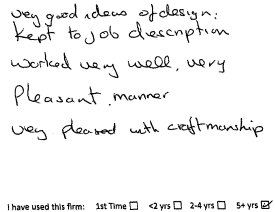 very good ideas of design:
Kept to job description
worked very well, very
Pleasant manner
very pleased with craftmanship
I have used this firm: 1st Time ☐ <2 yrs ☐ 2-4 yrs ☐ 5+ yrs ☑